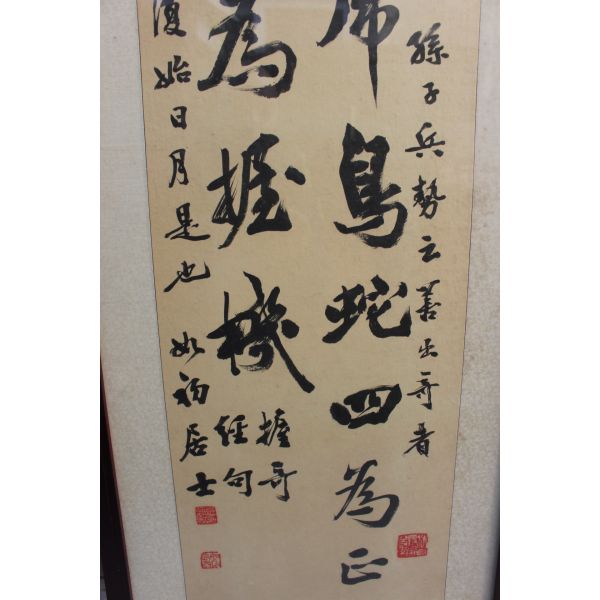 孫子兵勢云善出奇者
鳥蛇四為正
為握機
握奇
經句
復始日月是也
居士